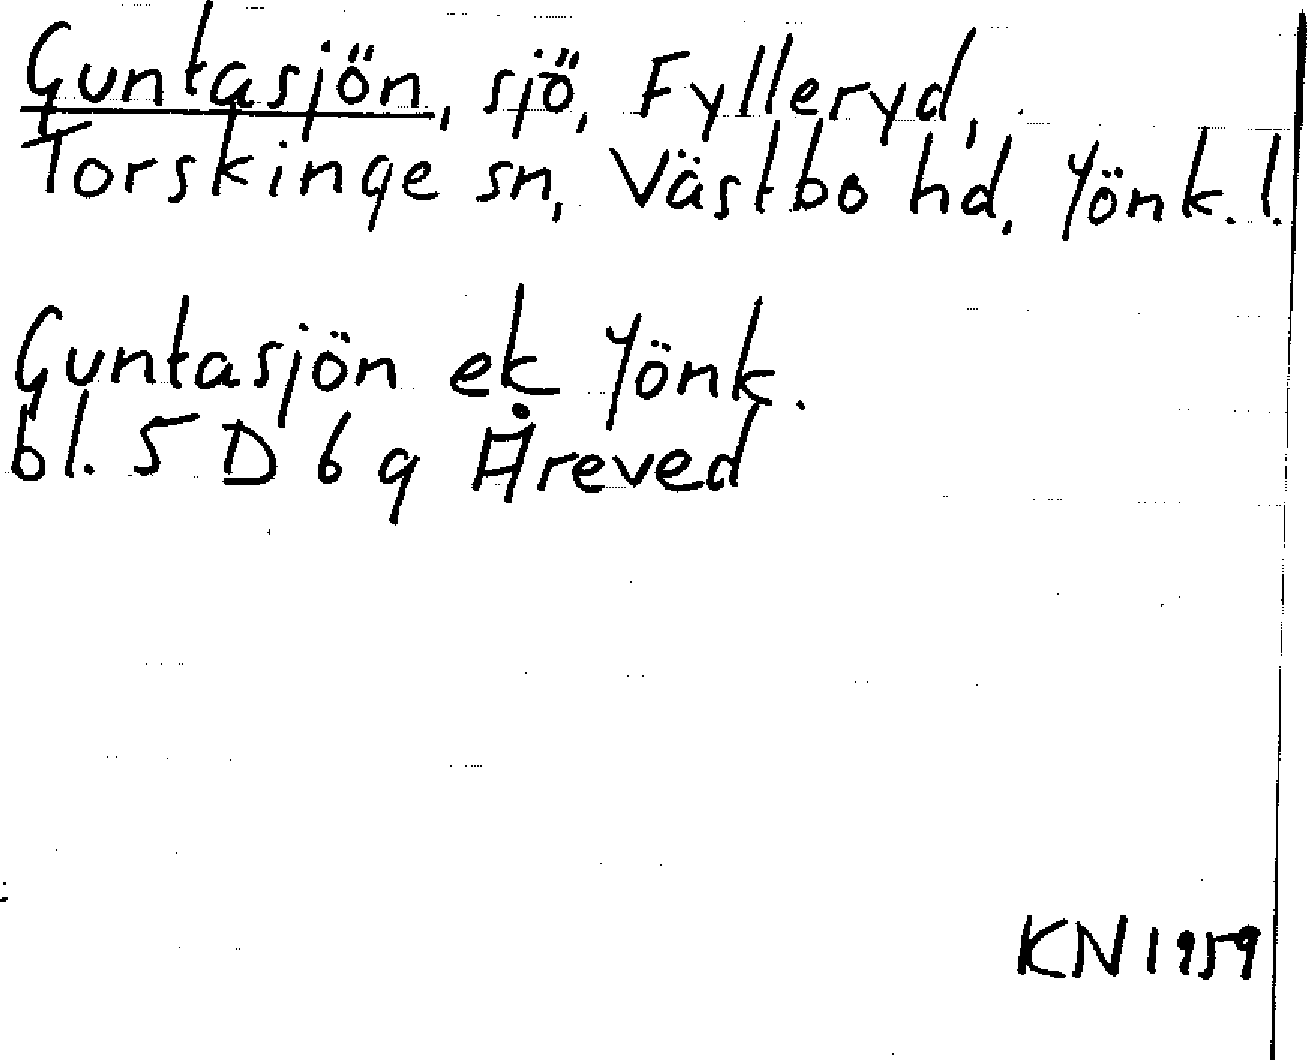 Guntasjön, sjö, Fylleryd,
Torskinge sn, Västbo hd, Jönk. l.
Guntasjön ek Jönk.
bl. 5 D 6 g Åreved
KN 1959